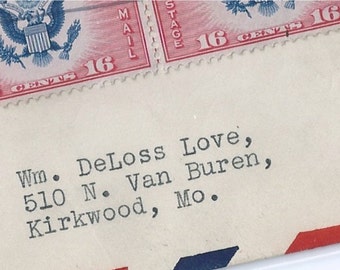 MAIL
POSTAGE
16 CENTS 16
16 CENTS 16
Wm. DeLoss Love,
510 N. Van Buren,
Kirkwood, Mo.